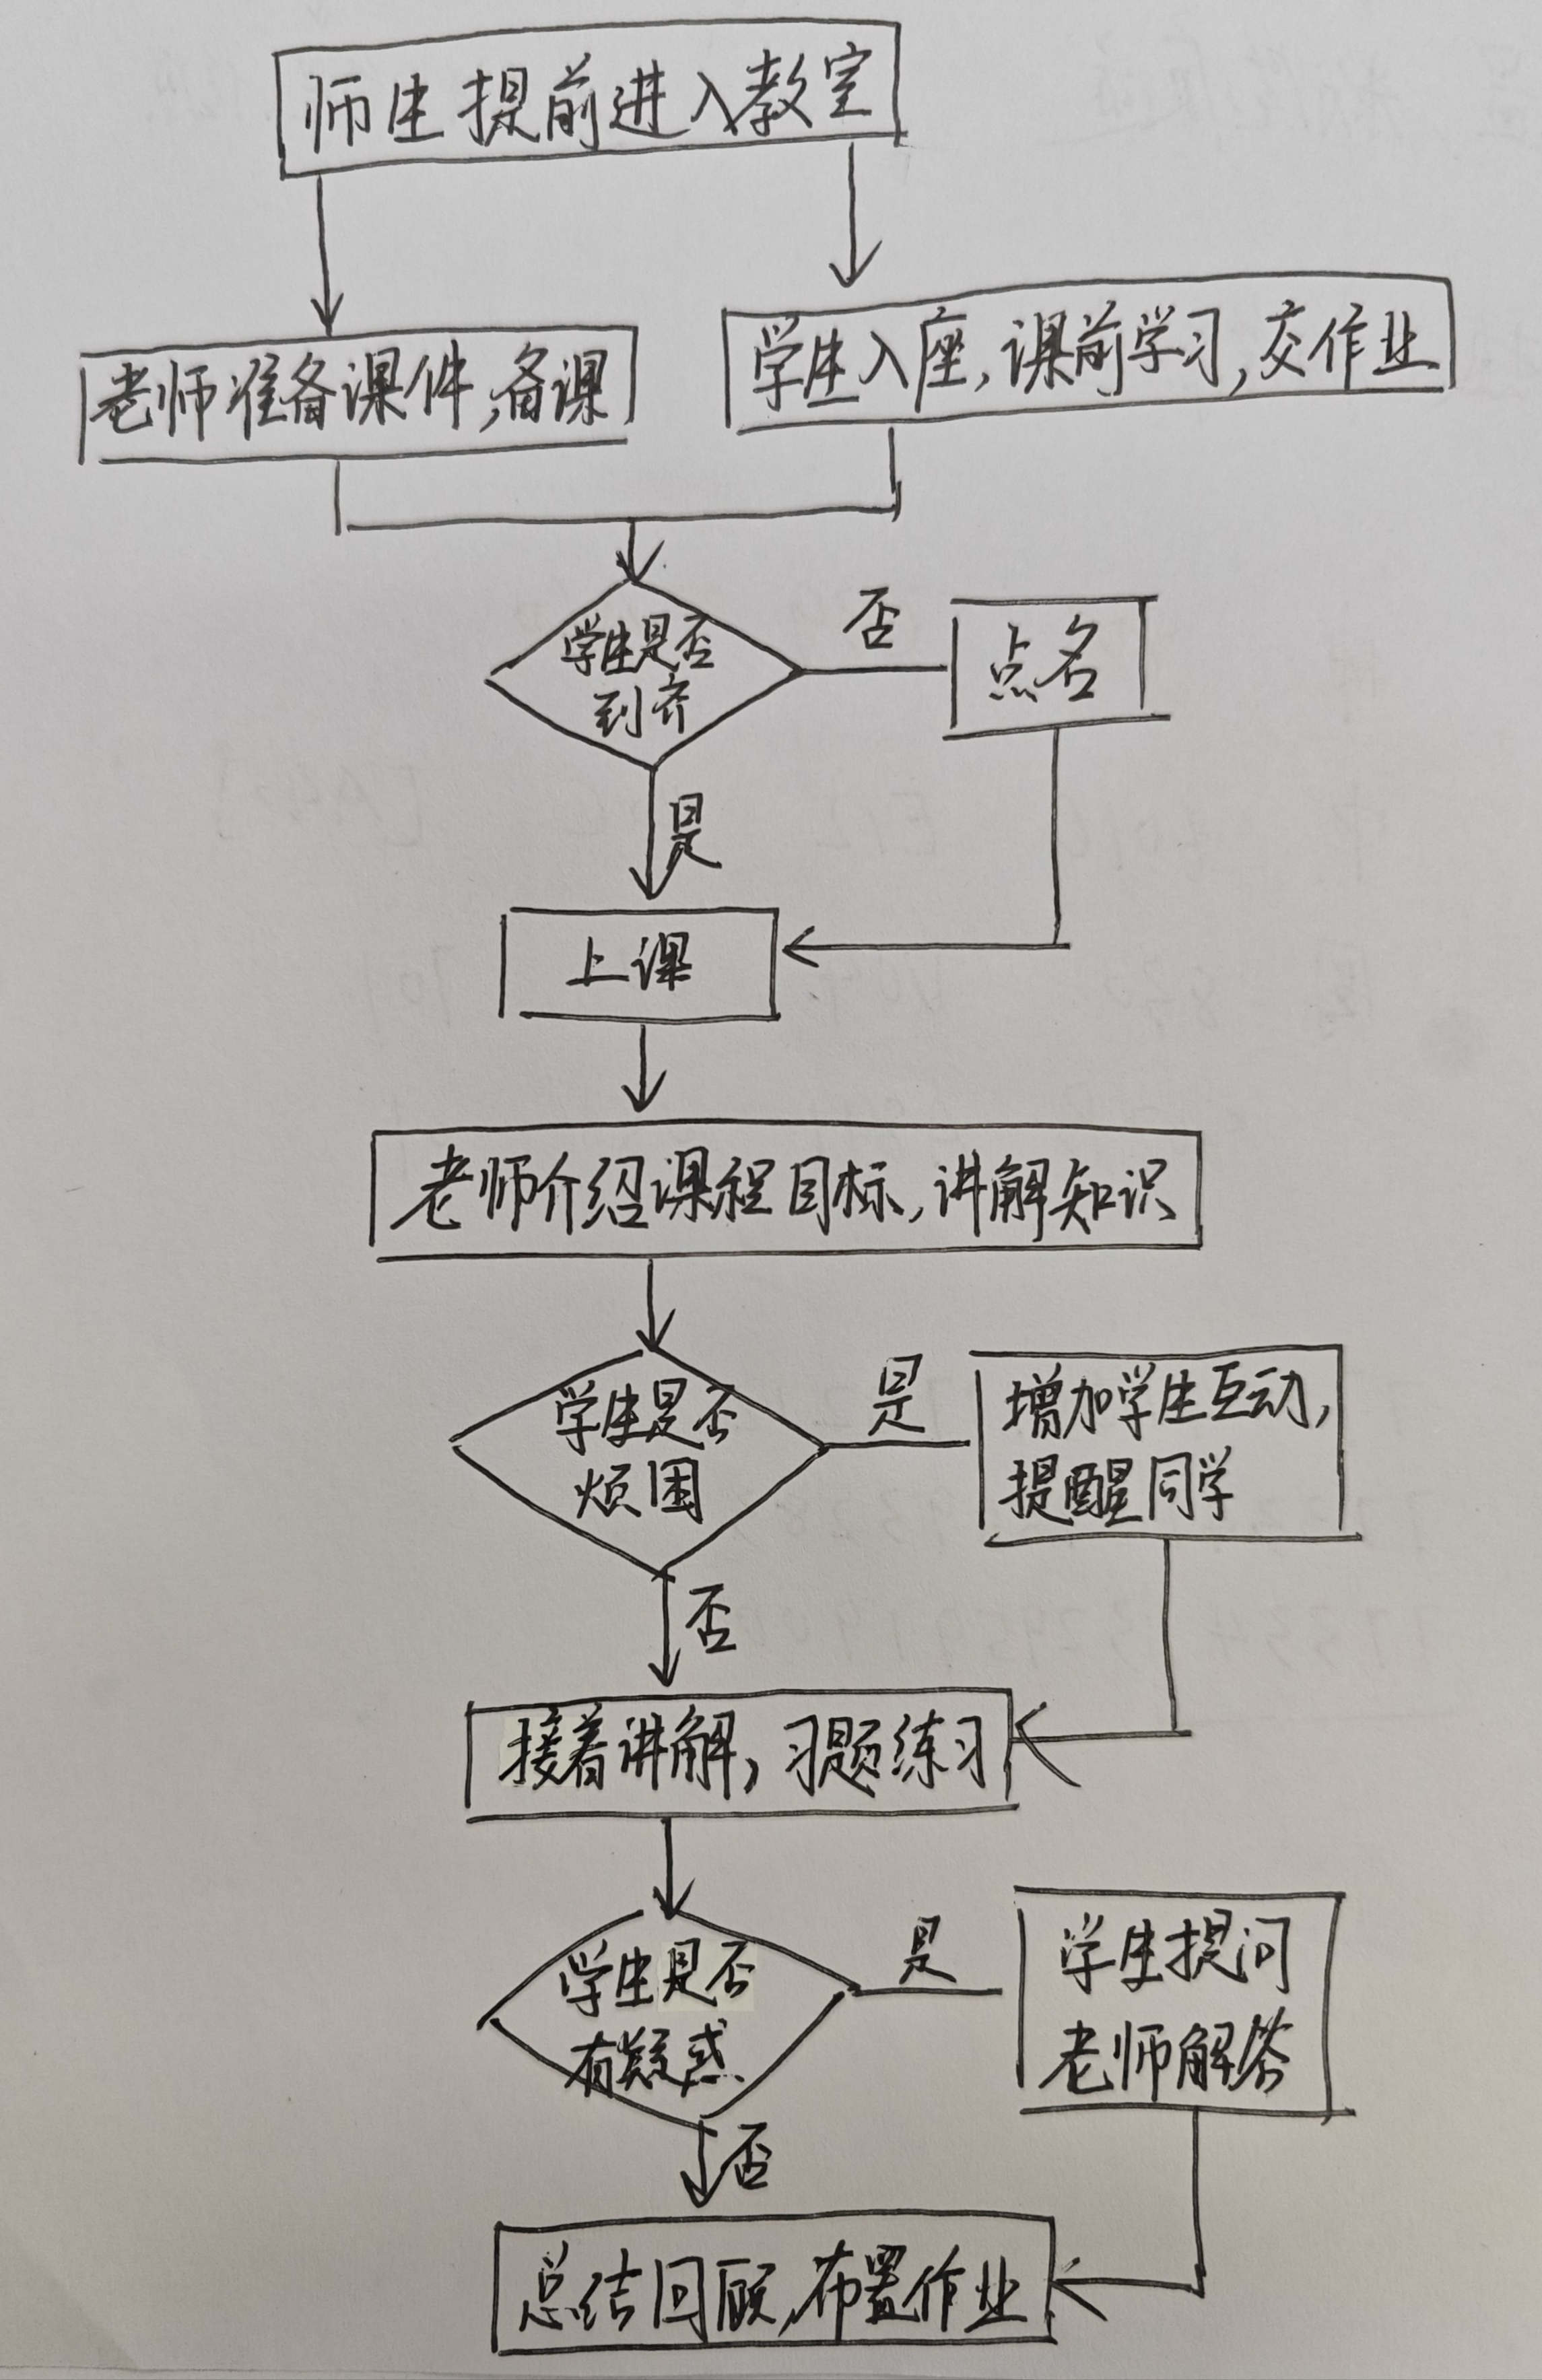 师生提前进入教室
老师准备课件,备课
学生入座,课前学习,交作业
学生是否
到齐
否
点名
是
上课
老师介绍课程目标,讲解知识
学生是否
烦困
是
增加学生互动,
提醒同学
否
接着讲解,习题练习
学生是否
有疑惑
是
学生提问
老师解答
否
总结回顾,布置作业